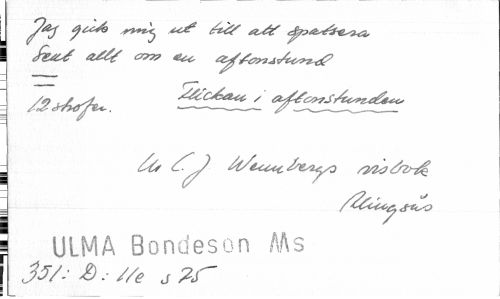 Jag gick mig ut till att spatsera
Sent allt om en aftonstund
12 strofer. Flickan i aftonstunden
Ur C. J Wennbergs visbok
Alingsås
ULMA Bondeson Ms
351: D: 11e s 75